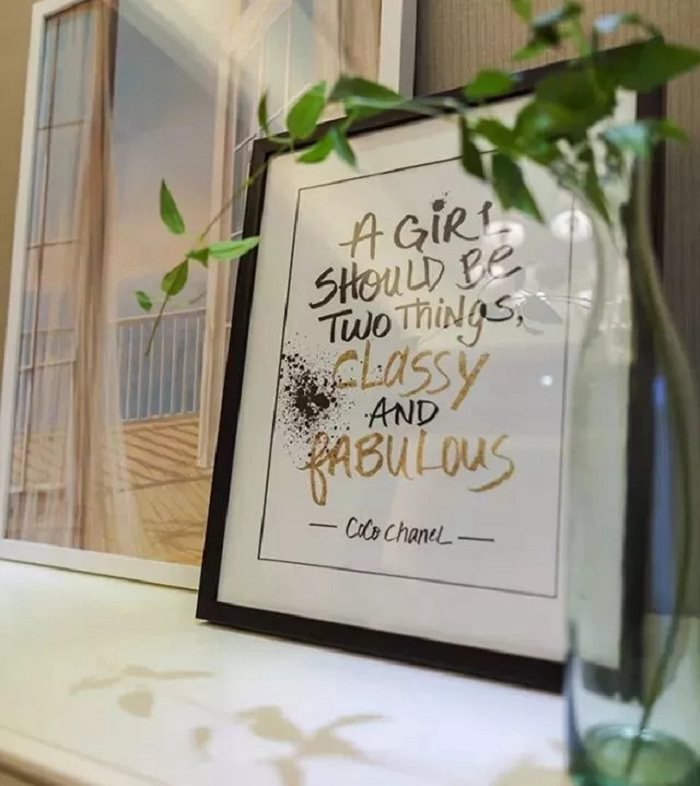 A GIRL
SHOULD BE
TWO THINGS,
CLASSY
AND
FABULOUS
— COCO CHANEL —